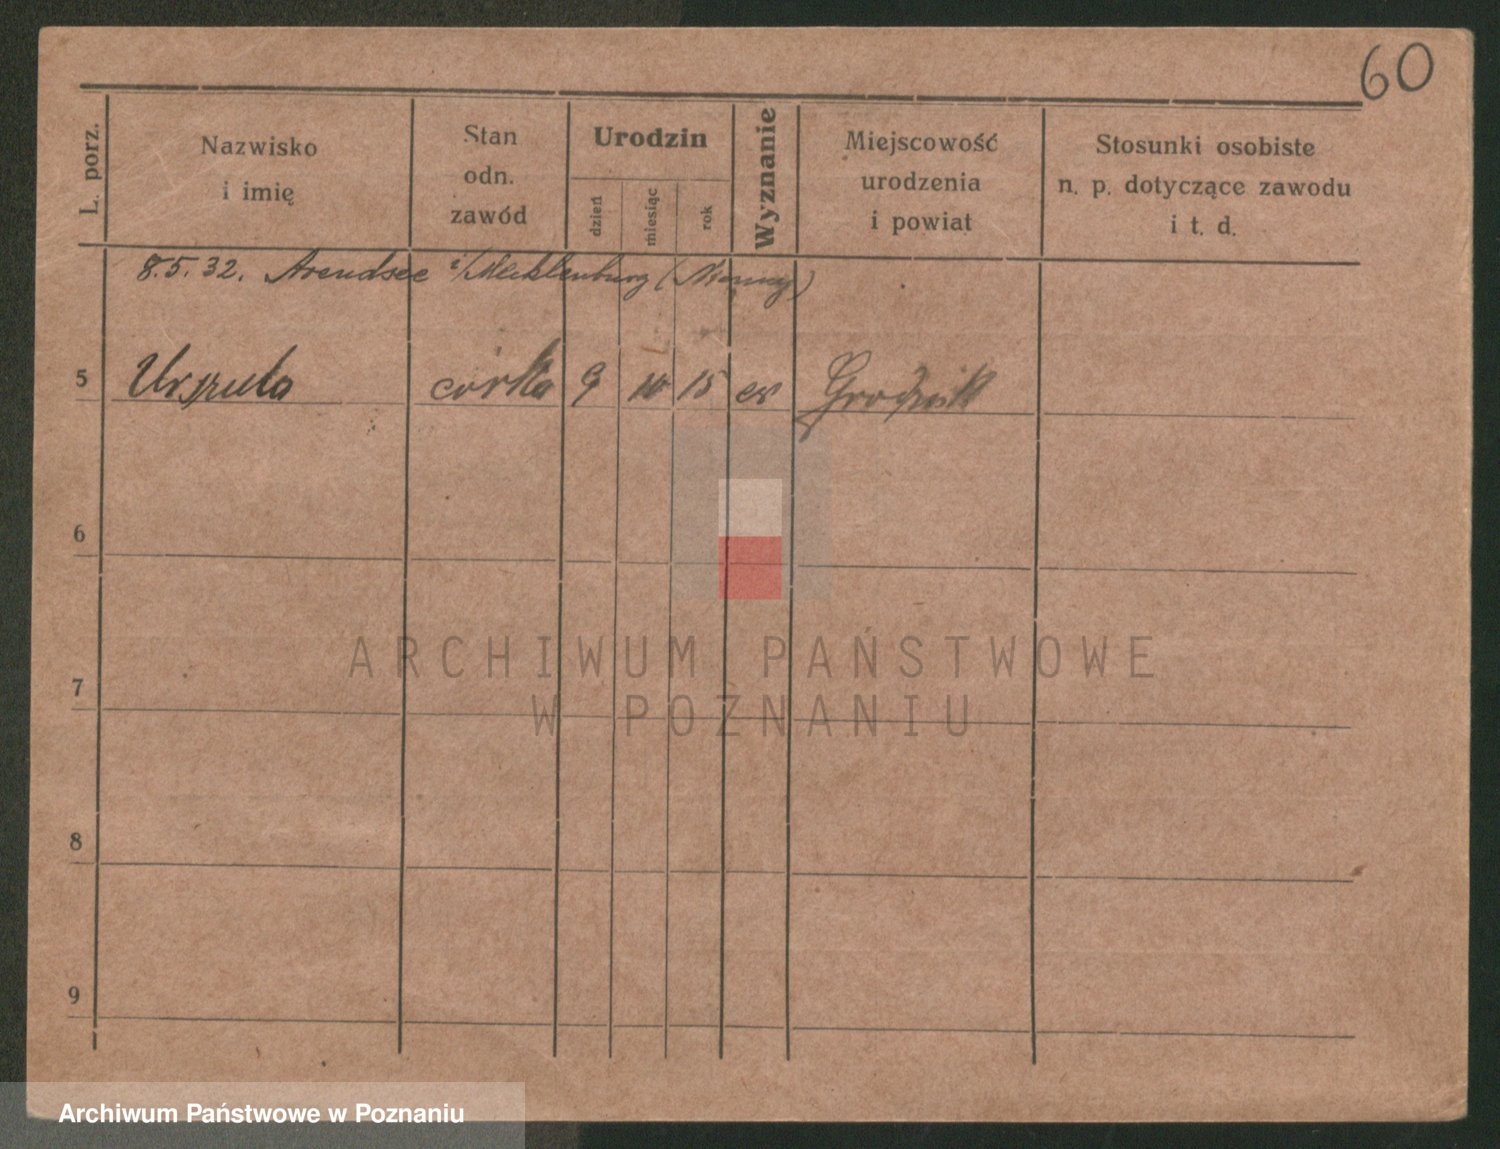 60
L. porz.
Nazwisko
i imię
Stan
odn.
zawód
Urodzin
dzień
miesiąc
rok
Wyznanie
Miejscowość
urodzenia
i powiat
Stosunki osobiste
n. p. dotyczące zawodu
i t. d.
8.5.32. Arendsee i/Mecklenburg (Niemcy)
5 Urszula córka 9 10 15 ew Grodzisk
6
7
8
9
ARCHIWUM PAŃSTWOWE
W POZNANIU
Archiwum Państwowe w Poznaniu